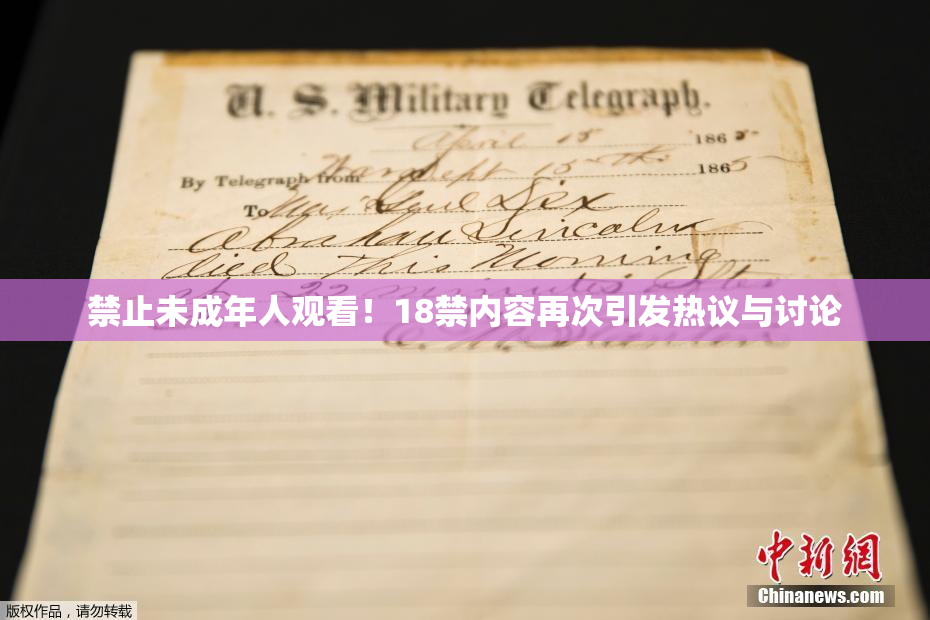 U. S. Military Telegraph.
April 15 1865
By Telegraph from War Dept 15th 1865
To Maj Genl Dix
Abraham Lincoln
died This Morning
22 minutes after
禁止未成年人观看！18禁内容再次引发热议与讨论
中新网
Chinanews.com
版权作品，请勿转载